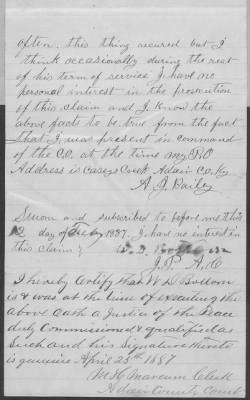 often. this thing secured but I
think occasionally during the rest
of his term of service. I have no
personal interest in the prosecution
of this claim and I know the
above facts to be true from the fact
that I was present in command
of the Co. at the time my P.O
Address is Caseys Creek Adair Co. Ky
A. J. Bailey
Sworn and subscribed to before me this
12 day of Feby 1887. I have no interest in
this claim;
J. P. A. C
I hereby Certify that W. D. Bottom
is & was at the time of executing the
above oath a Justice of the Peace
duly Commissioned & qualified as
such and his Signature thereto
is genuine. April 25th 1887
Marcum Clerk
Adair County Court